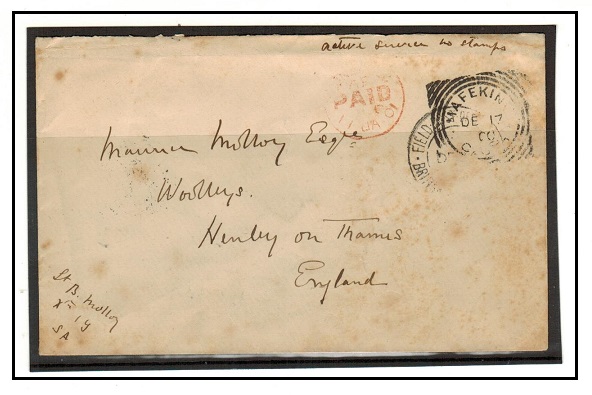 active service no stamps
PAID
MAFEKIN
DE 17
FIELD
Maurice Molloy Esqre
Woolleys.
Henley on Thames
England
Lt
B. Molloy
I Y
S A